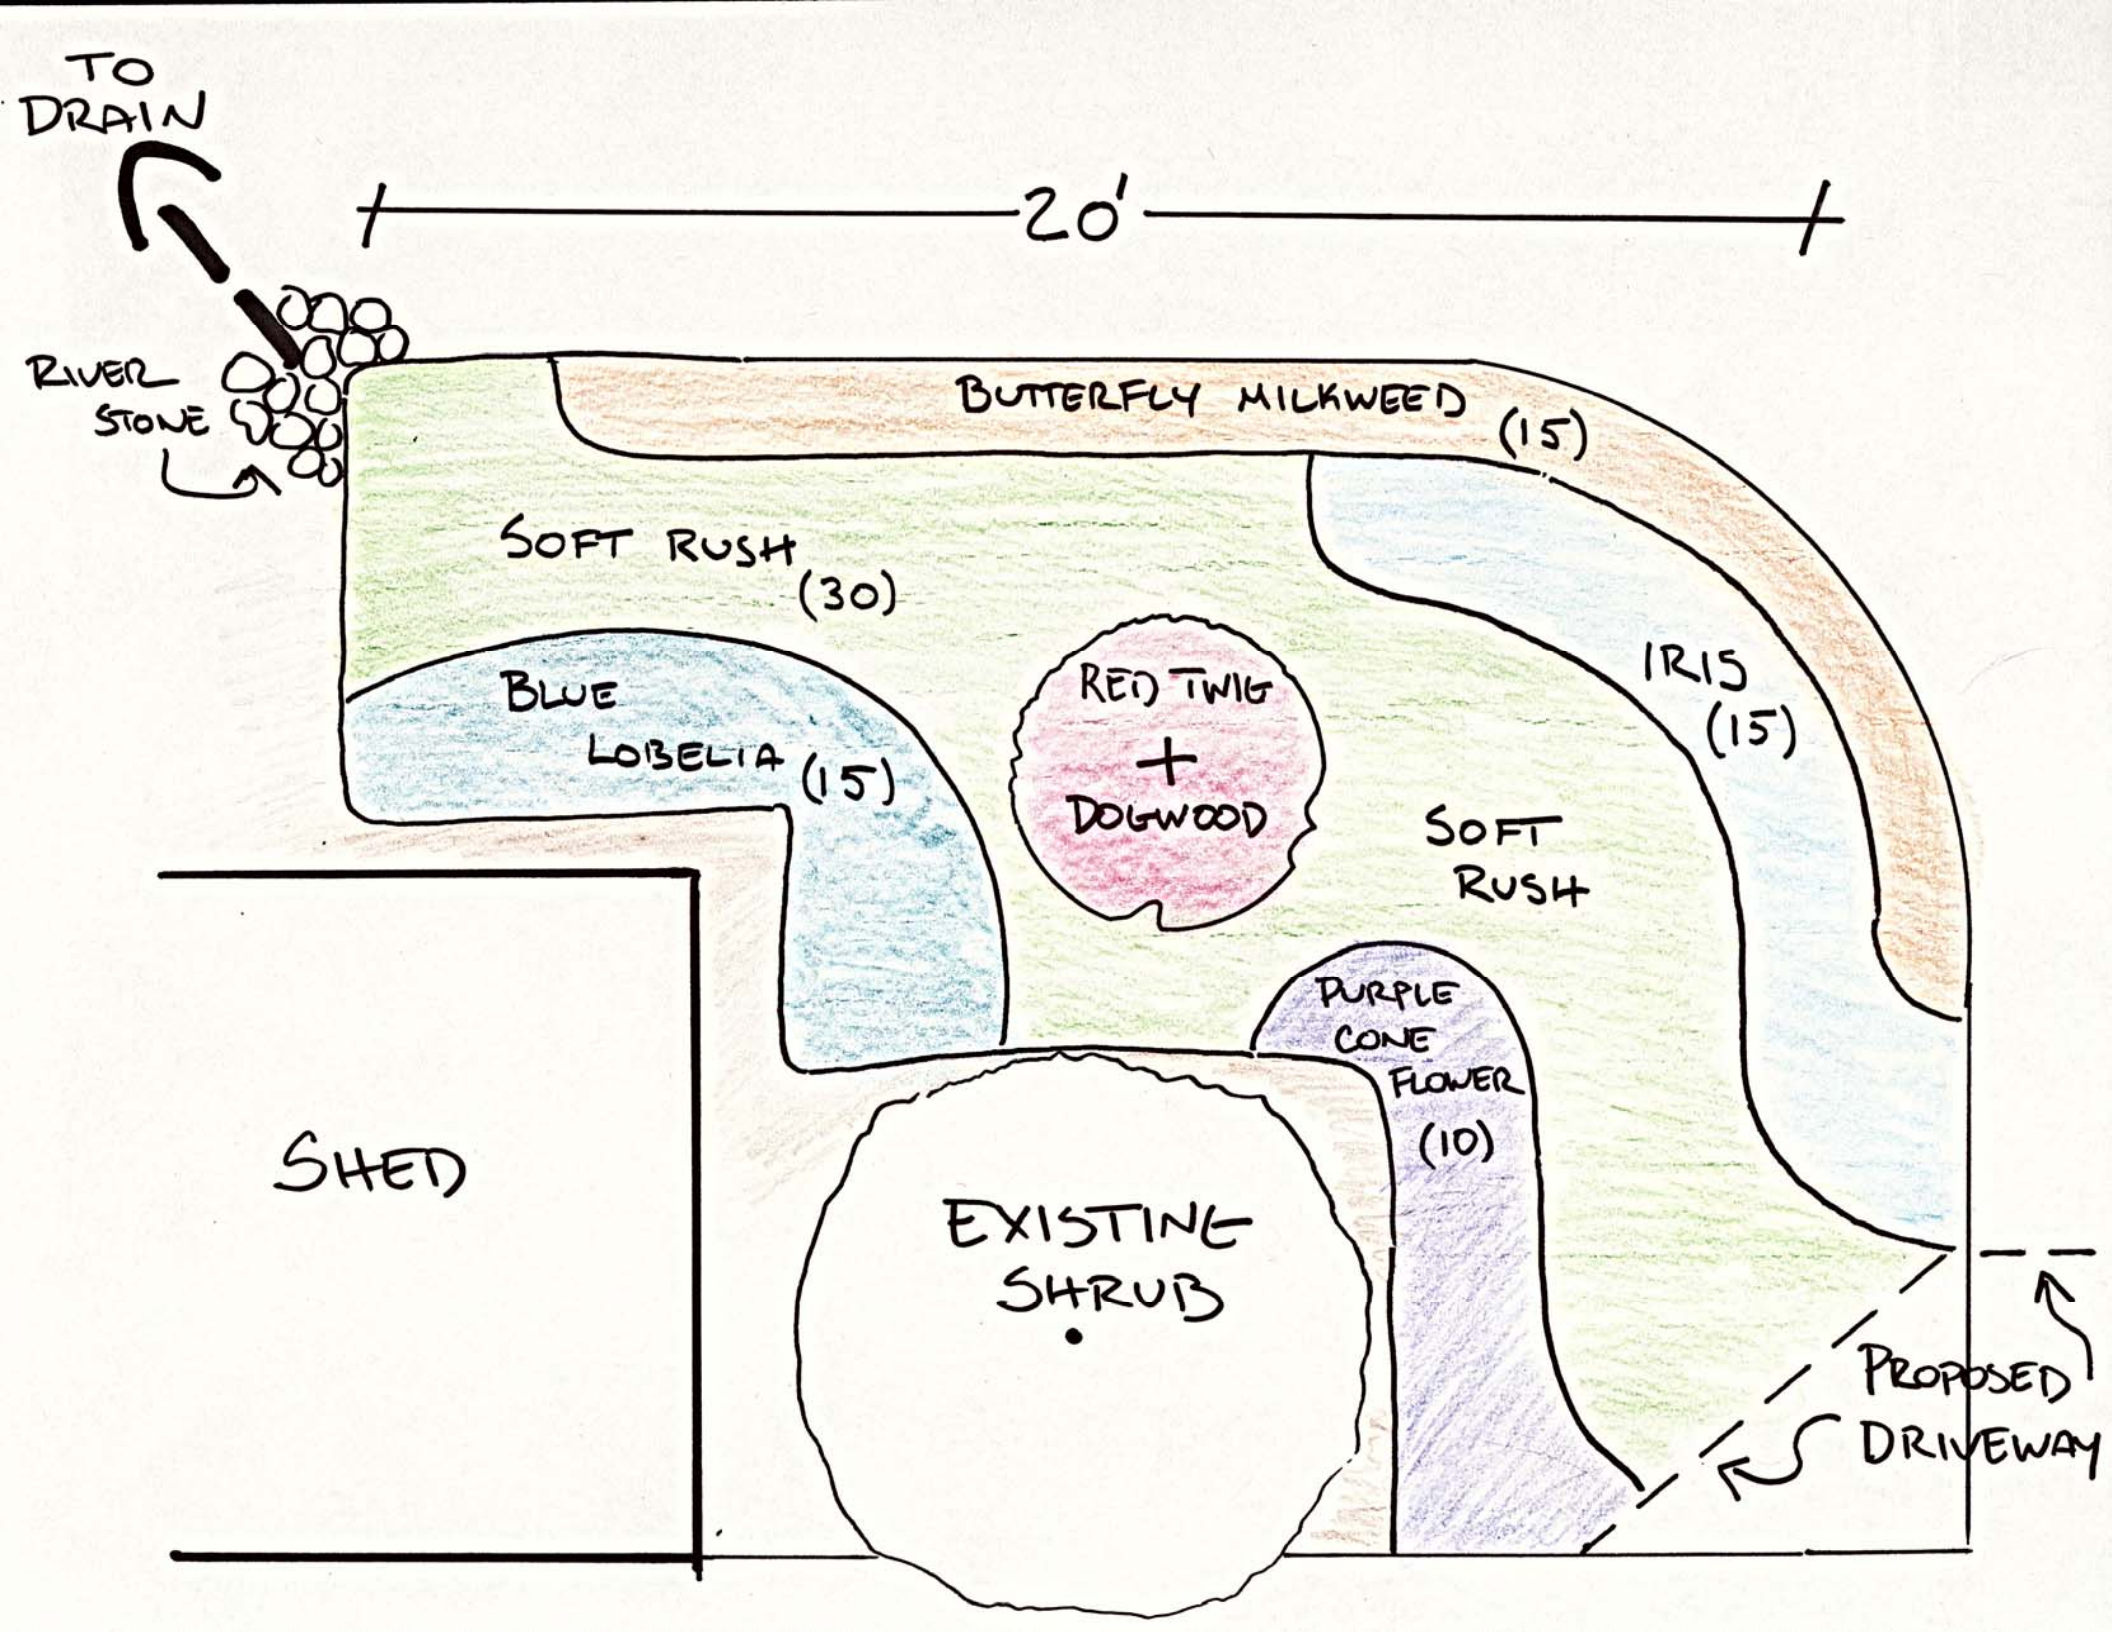 TO
DRAIN
20'
RIVER
STONE
BUTTERFLY MILKWEED
(15)
SOFT RUSH
(30)
BLUE
LOBELIA (15)
RED TWIG
+
DOGWOOD
IRIS
(15)
SOFT
RUSH
PURPLE
CONE
FLOWER
(10)
SHED
EXISTING
SHRUB
PROPOSED
DRIVEWAY